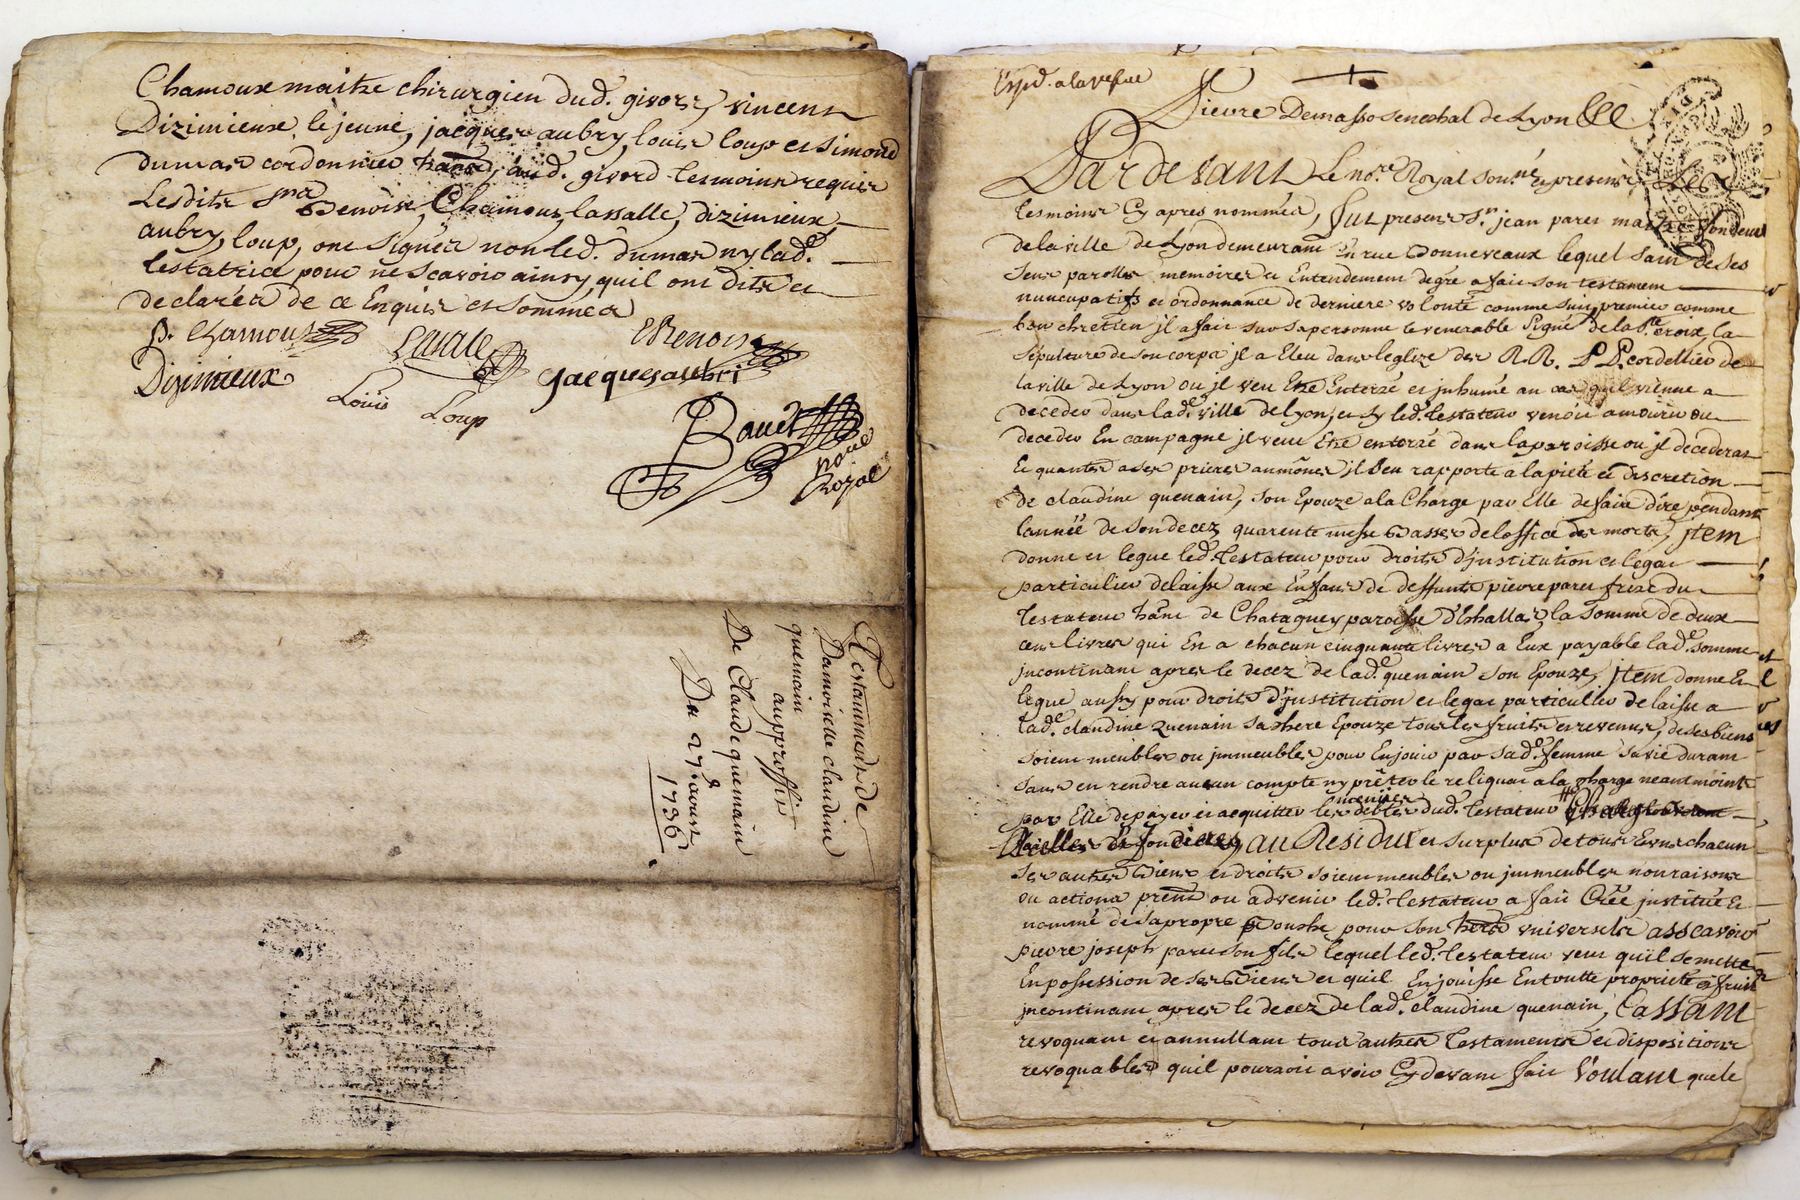 Chamoux maitre chirurgien dud. givors, vincent
Dizimieux le jeune, jacques aubry, louis loup et Simond
dumas cordonnier dud. givord tesmoins requis
Lesdits Srs Benoist, Chamoux, lassalle, dizimieux,
aubry, loup, ont signer non led. dumas ny lad.
testatrice pour ne scavoir ainsy quil ont dits et
declarer de ce Enquis et sommes
P. Chamoux
Lasale
Benoist
Dizimieux
Louis Loup
Jacques aubri
Bauet
noue
Royal
Testamment de
Damoiselle claudine
quemain
auproffit
De Claude quemain
Du 27e aoust
1736
Expd. a la vefue
Pierre Demasso senechal de Lyon
Pardevant Le nore. Royal sousne. et presents Les
tesmoins Cy apres nommés, fut present Sr. jean paret maitre fondeur
de la ville de Lyon demeurant En rue Bonneveaux lequel sain de ses
sens parolles memoires et Entendement de gré a fait son testament
nuncupatifs et ordonnance de derniere volonté comme suit, premier comme
bon chretien jl a fait sur sa personne le venerable signe de la Ste. croix, la
sepulture de son corps jl a Eleu dans leglize des R.R. P P. cordellier de
la ville de Lyon ou jl veu Etre Enterré et jnhumé au cas quil vienne a
deceder dans lade. ville de Lyon, et sy led. testateur venoit a mourir ou
deceder En campagne jl veut Etre enterré dans la paroisse ou jl decederat
Et quants a ses prieres aumônes jl sen rapporte a la pieté et discretion
de claudine quenain, son Epouze a la Charge par Elle de faire dire pendant
lannéé de son decez quarente messe basses de loffice des morts, jtem
donne et legue led. testateur pour droits djnstitution et legat
particulier delaisse aux Enfans de deffunts pierre paret frere du
testateur hant de Chataguey paroisse d'Ishallas, la somme de deux
cent livres qui En a chacun cinquante livres a Eux payable lade. somme
jncontinant apres le decez de lade. quenain son Epouze, jtem donne Et
legue aussy pour droits d'jnstitution et legat particullier delaisse a
lade. claudine quenain sa chere Epouze tous les fruits et revenus, de ses biens
soient meubles ou jmmeubles pour En jouir par sade. femme sa vie durant
sans en rendre aucun compte ny prêter le reliquat a la charge neantmoints
par Elle de payer et acquitter les debtes dud. testateur
au Residut et surplus de tous Es uns chacun
ses autres Biens et droits soient meubles ou jmmeubles nom raisons
ou actions prent ou advenir led. testateur a fait Créé jnstitué Et
nommé de sa propre bouche pour son universelle asscavoir
pierre joseph paret son fils lequel led. testateur veut quil se mette
En possession de ses Biens et quil En jouisse En toutte proprieté et fruit
jncontinant apres le decez de lade. claudine quenain, Cassant
revoquant et annullant tous autres testaments et dispositions
revoquables quil pourroit avoir Cy devant fait Voulant que le